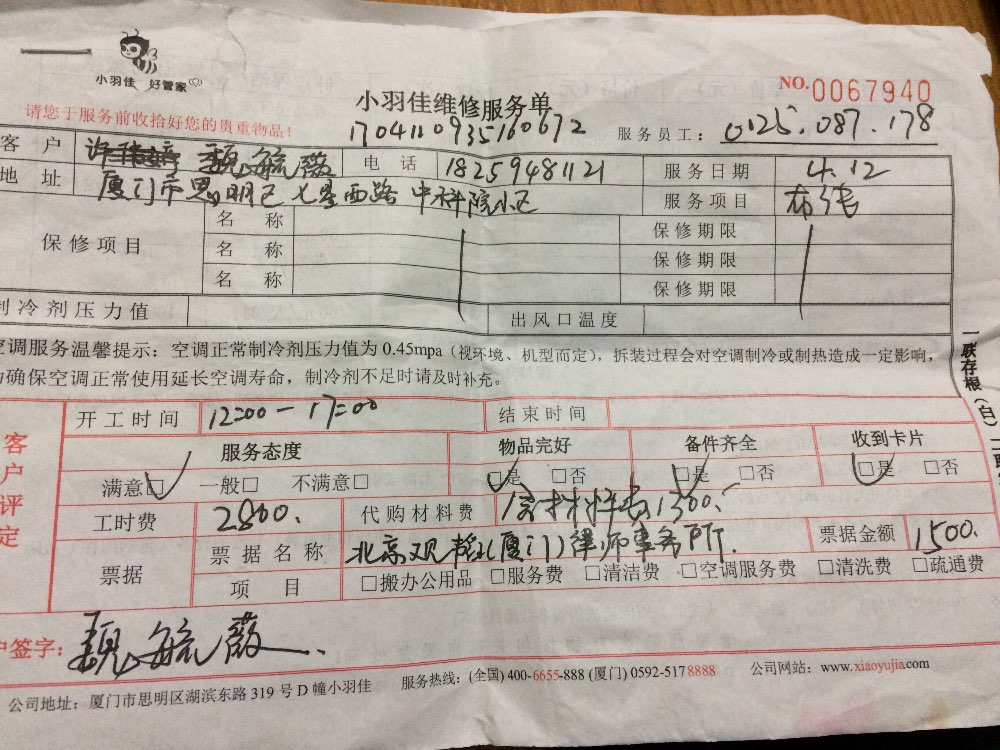 小羽佳 好管家
NO.0067940
请您于服务前收拾好您的贵重物品!
小羽佳维修服务单
1704110935160672
服务员工: 0125.087.178
客户 魏毓薇 电话 18259481121 服务日期 4.12
地址 厦门市思明区七星西路中科院小区 服务项目 布线
保修项目 名称 保修期限
名称 保修期限
名称 保修期限
制冷剂压力值 出风口温度
空调服务温馨提示: 空调正常制冷剂压力值为0.45mpa(视环境、机型而定),拆装过程会对空调制冷或制热造成一定影响,
为确保空调正常使用延长空调寿命,制冷剂不足时请及时补充。
一联存根(白)
客户评定
开工时间 12:00-17:00 结束时间
服务态度 物品完好 备件齐全 收到卡片
满意□ 一般□ 不满意□ □是 □否 □是 □否 □是 □否
工时费 2800. 代购材料费 1300.
票据 票据名称 北京观韬(厦门)律师事务所. 票据金额 1500.
项目 □搬办公用品 □服务费 □清洁费 □空调服务费 □清洗费 □疏通费
户签字: 魏毓薇
公司地址: 厦门市思明区湖滨东路319号D幢小羽佳 服务热线: (全国) 400-6655-888 (厦门) 0592-5178888 公司网站: www.xiaoyujia.com